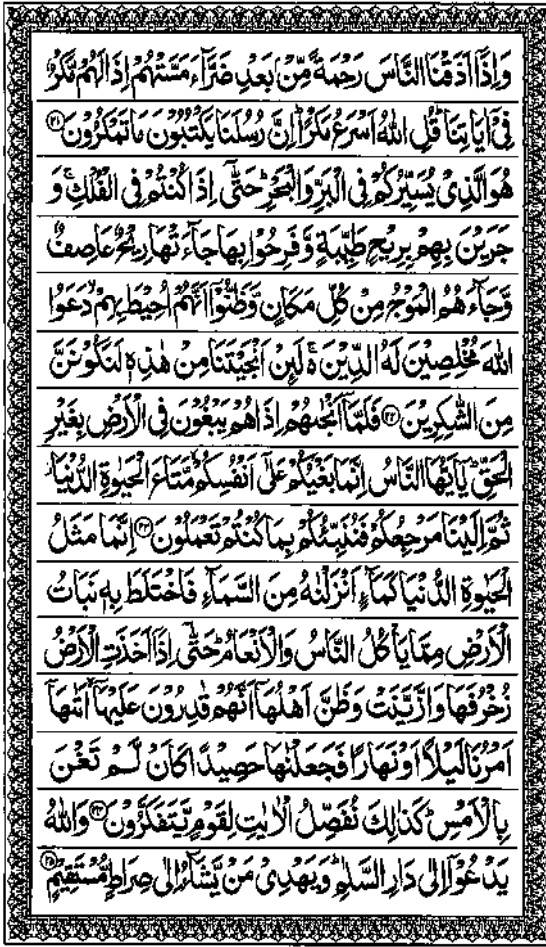 وَاِذَاۤ اَذَقْنَا النَّاسَ رَحْمَةً مِّنْۢ بَعْدِ ضَرَّآءَ مَسَّتْهُمْ اِذَا لَهُمْ مَّكْرٌ
فِیْۤ اٰیَاتِنَا ؕ قُلِ اللّٰهُ اَسْرَعُ مَكْرًا ؕ اِنَّ رُسُلَنَا یَكْتُبُوْنَ مَا تَمْكُرُوْنَ ﴿۲۱﴾
هُوَ الَّذِیْ یُسَیِّرُكُمْ فِی الْبَرِّ وَالْبَحْرِ ؕ حَتّٰۤی اِذَا كُنْتُمْ فِی الْفُلْكِ ۚ وَ
جَرَیْنَ بِهِمْ بِرِیْحٍ طَیِّبَةٍ وَّفَرِحُوْا بِهَا جَآءَتْهَا رِیْحٌ عَاصِفٌ
وَّجَآءَهُمُ الْمَوْجُ مِنْ كُلِّ مَكَانٍ وَّظَنُّوْۤا اَنَّهُمْ اُحِیْطَ بِهِمْ ۙ دَعَوُا
اللّٰهَ مُخْلِصِیْنَ لَهُ الدِّیْنَ ۚ۬ لَىِٕنْ اَنْجَیْتَنَا مِنْ هٰذِهٖ لَنَكُوْنَنَّ
مِنَ الشّٰكِرِیْنَ ﴿۲۲﴾ فَلَمَّاۤ اَنْجٰىهُمْ اِذَا هُمْ یَبْغُوْنَ فِی الْاَرْضِ بِغَیْرِ
الْحَقِّ ؕ یٰۤاَیُّهَا النَّاسُ اِنَّمَا بَغْیُكُمْ عَلٰۤی اَنْفُسِكُمْ ۙ مَّتَاعَ الْحَیٰوةِ الدُّنْیَا ؗ
ثُمَّ اِلَیْنَا مَرْجِعُكُمْ فَنُنَبِّئُكُمْ بِمَا كُنْتُمْ تَعْمَلُوْنَ ﴿۲۳﴾ اِنَّمَا مَثَلُ
الْحَیٰوةِ الدُّنْیَا كَمَآءٍ اَنْزَلْنٰهُ مِنَ السَّمَآءِ فَاخْتَلَطَ بِهٖ نَبَاتُ
الْاَرْضِ مِمَّا یَاْكُلُ النَّاسُ وَالْاَنْعَامُ ؕ حَتّٰۤی اِذَاۤ اَخَذَتِ الْاَرْضُ
زُخْرُفَهَا وَازَّیَّنَتْ وَظَنَّ اَهْلُهَاۤ اَنَّهُمْ قٰدِرُوْنَ عَلَیْهَاۤ ۙ اَتٰىهَاۤ
اَمْرُنَا لَیْلًا اَوْ نَهَارًا فَجَعَلْنٰهَا حَصِیْدًا كَاَنْ لَّمْ تَغْنَ
بِالْاَمْسِ ؕ كَذٰلِكَ نُفَصِّلُ الْاٰیٰتِ لِقَوْمٍ یَّتَفَكَّرُوْنَ ﴿۲۴﴾ وَاللّٰهُ
یَدْعُوْۤا اِلٰی دَارِ السَّلٰمِ ؕ وَیَهْدِیْ مَنْ یَّشَآءُ اِلٰی صِرَاطٍ مُّسْتَقِیْمٍ ﴿۲۵﴾